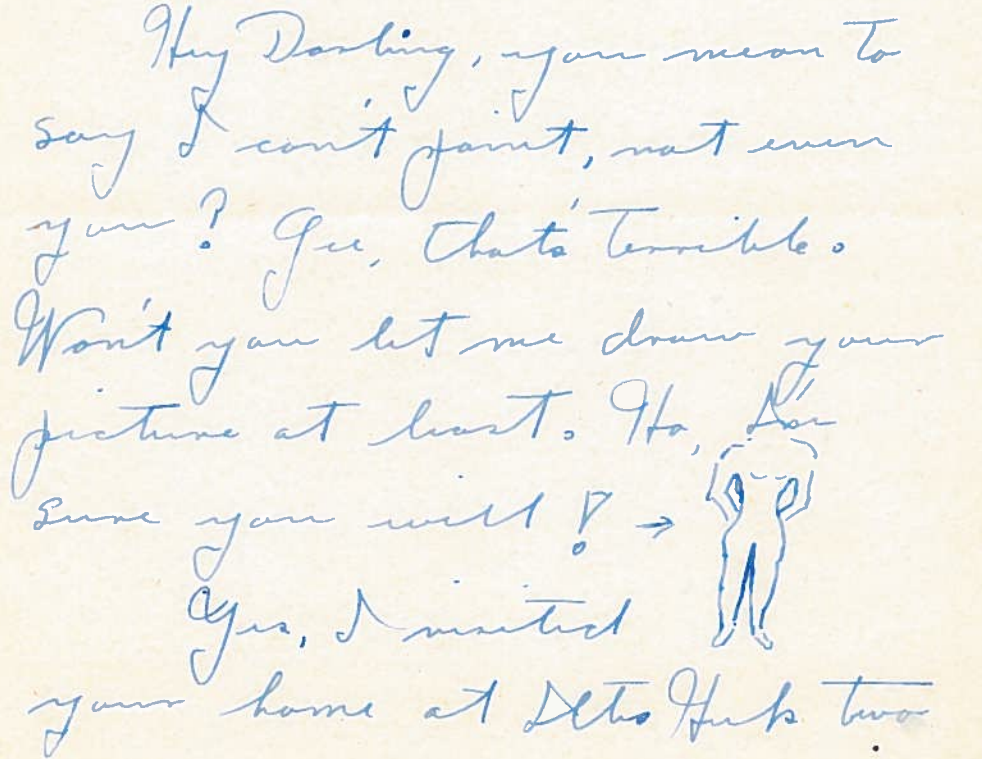 Hey Darling, you mean to
say I can't paint, not even
you? Gee, that's terrible.
Won't you let me draw your
picture at least. Ha, I'm
sure you will! →
Yes, I visited
your home at two